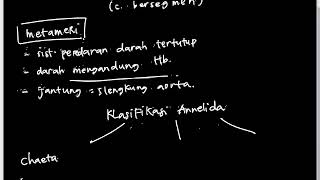 (c. bersegmen)
metameri
- sist peredaran darah tertutup
- darah mengandung Hb.
- jantung = slengkung aorta.
Klasifikasi Annelida
Chaeta